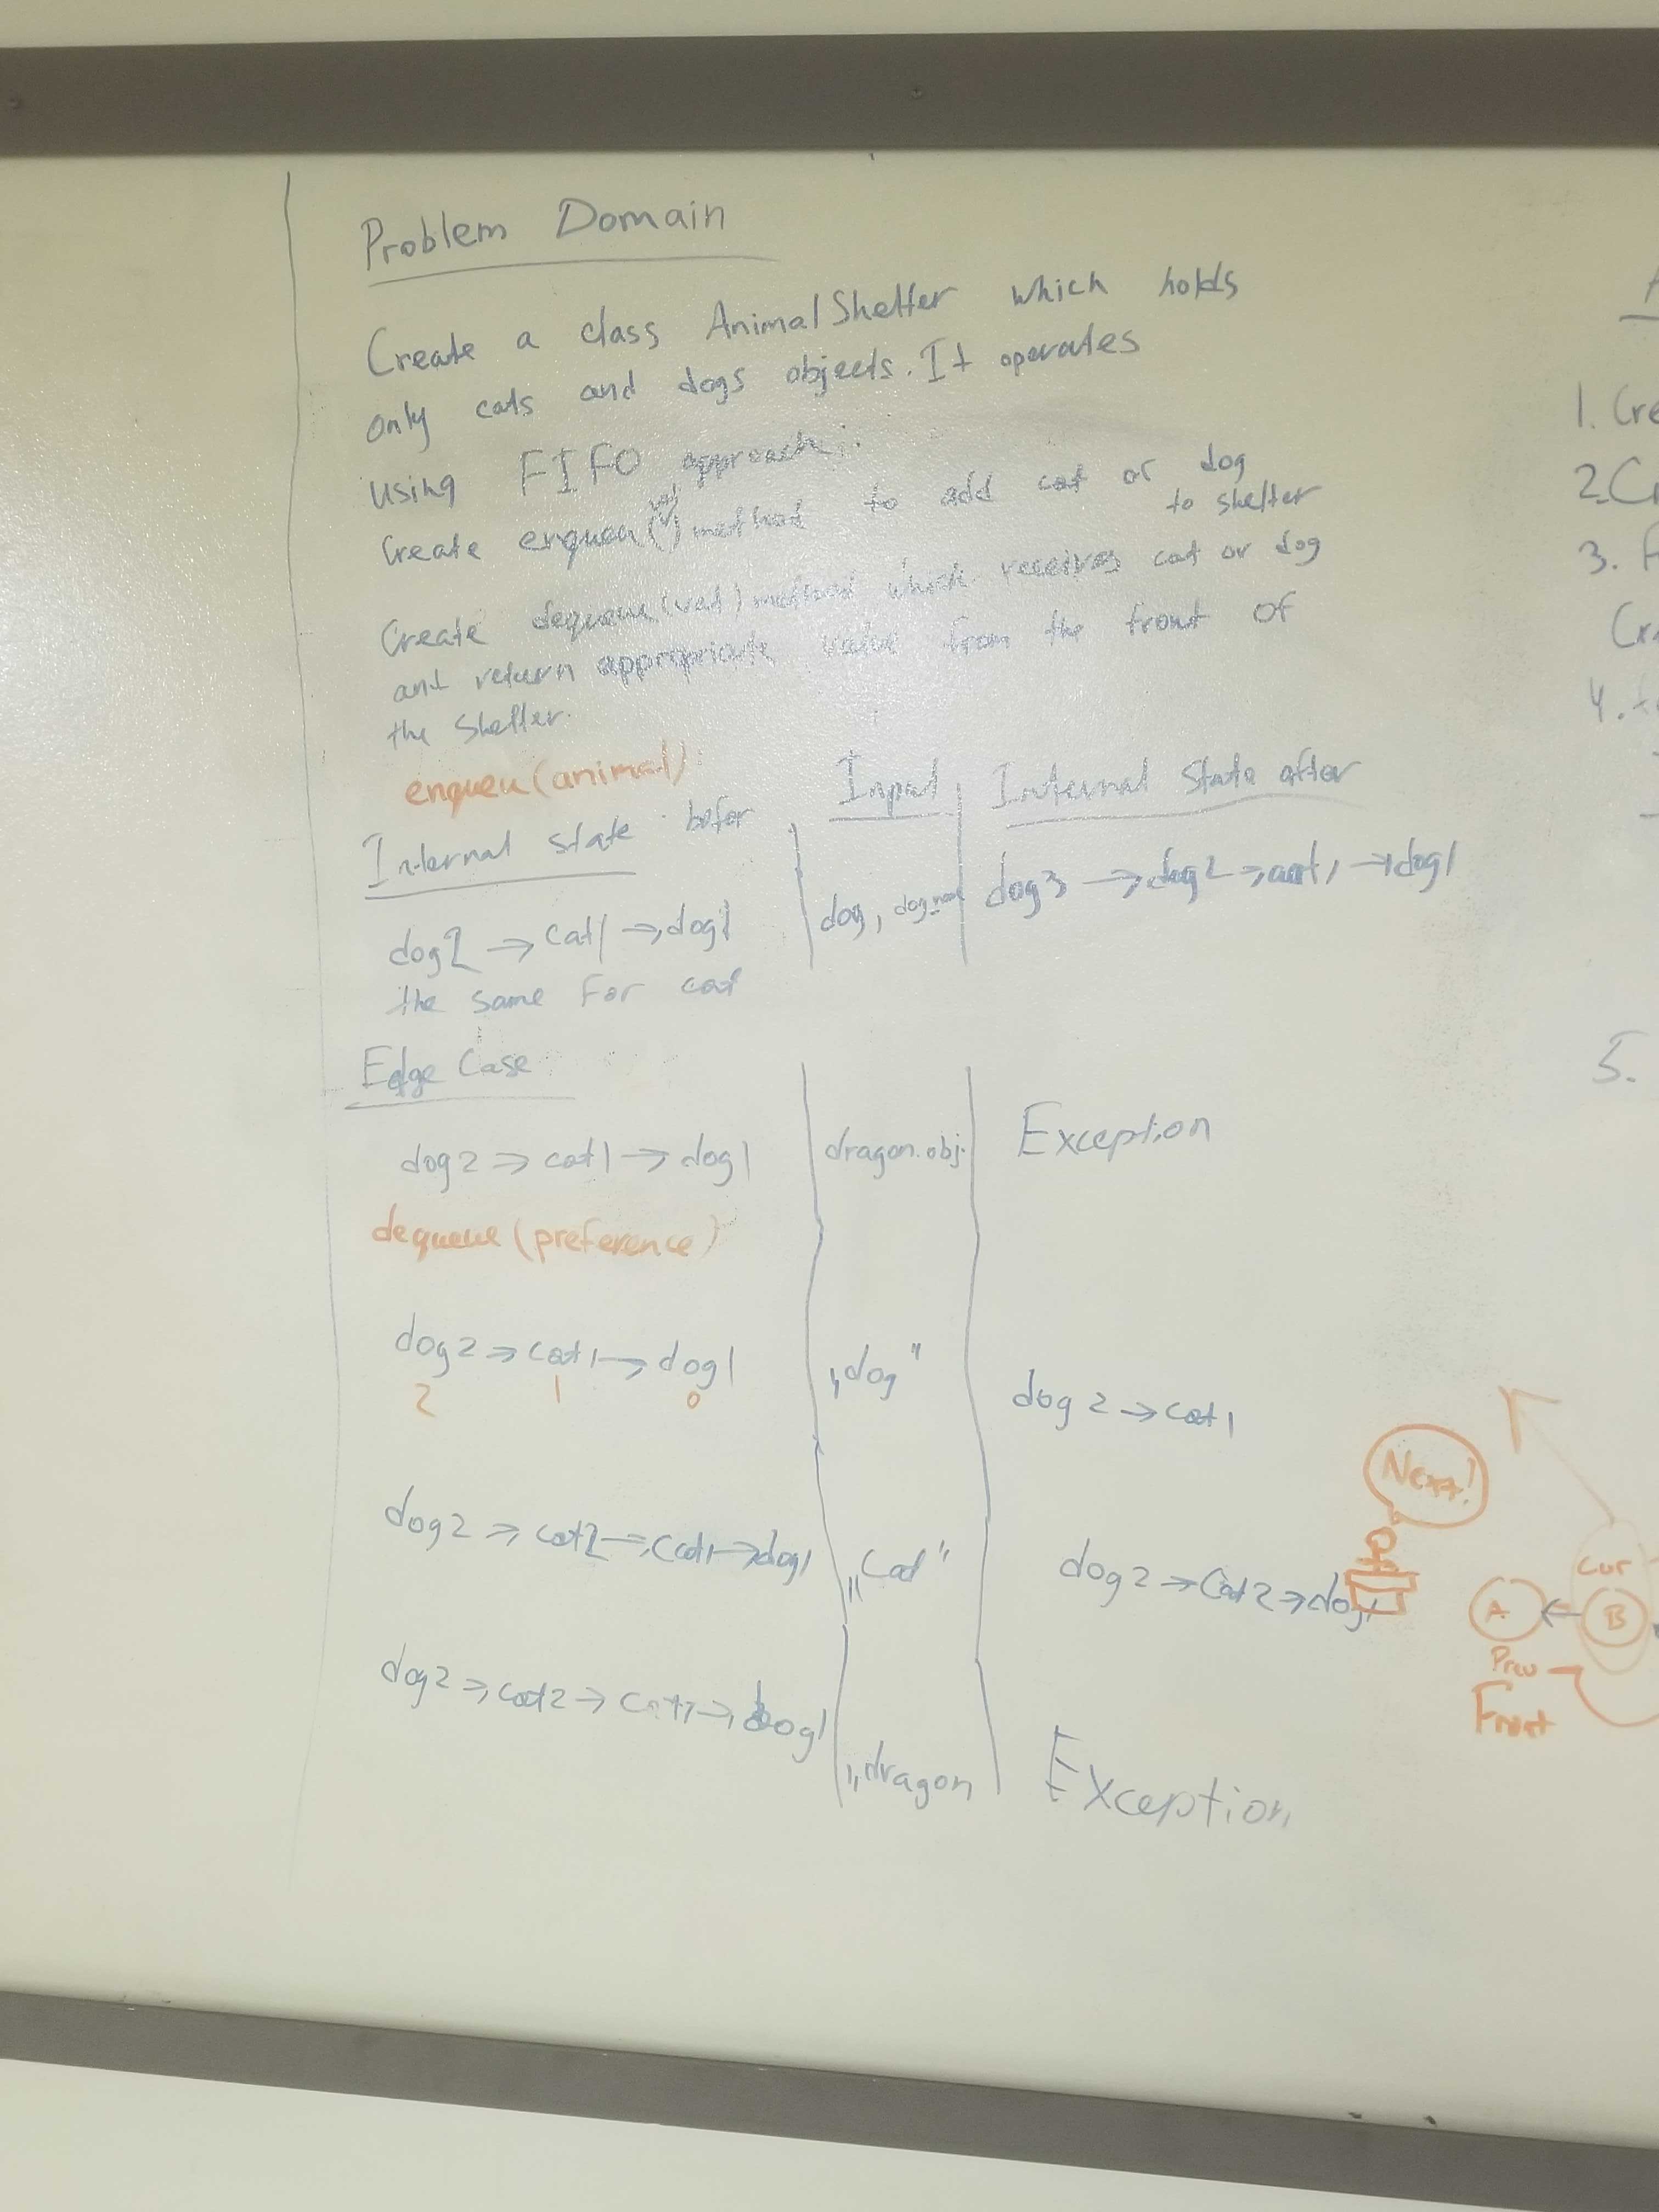 Problem Domain
Create a class AnimalShelter which holds
only cats and dogs objects. It operates
using FIFO approach.
Create enqueu(val) method to add cat or dog
to shelter
Create dequeue(val) method which receives cat or dog
and return appropriate value from the front of
the shelter.
enqueu(animal)
Internal state befor | Input | Internal State after
dog2 → cat1 → dog1 | dog, | dog3 → dog2 → cat1 → dog1
the same for cat
Edge Case
dog2 → cat1 → dog1 | dragon.obj. | Exception
dequeue(preference)
dog2 → cat1 → dog1 | "dog" | dog2 → cat1
2 1 0
dog2 → cat2 → cat1 → dog1 | "Cat" | dog2 → Cat2 → dog1
dog2 → cat2 → cat1 → dog1 | "dragon | Exception
Next!
Cur
A ← B
Prev
Front
1. Cre
2. C
3.
Cr
4.
5.